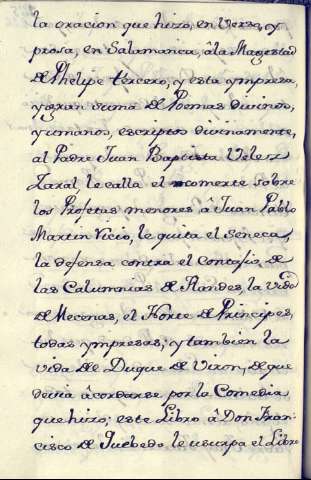 la oracion que hizo, en Verso, y
prosa, en Salamanca, â la Magestad
de Phelipe tercero, y esta ympresa,
y gran suma de Poemas divinos,
y umanos, escriptos divinamente,
al Padre Juan Baptista Velez
Zaral, le calla el comento sobre
los Profetas menores â Juan Pablo
Martin Vicio, le quita el Seneca,
la defensa contra el Contagio, de
las Calumnias de Flandes, la Vida
de Mecenas, el Norte de Principes,
todas ympresas; y tambien la
vida del Duque de Viron, de que
devia âcordarse por la Comedia
que hizo; este Libro â Don Fran-
cisco de Quebedo le usurpa el Libro